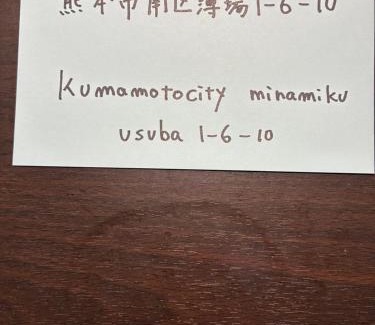 熊本市南区薄場1-6-10
Kumamotocity minamiku
usuba 1-6-10